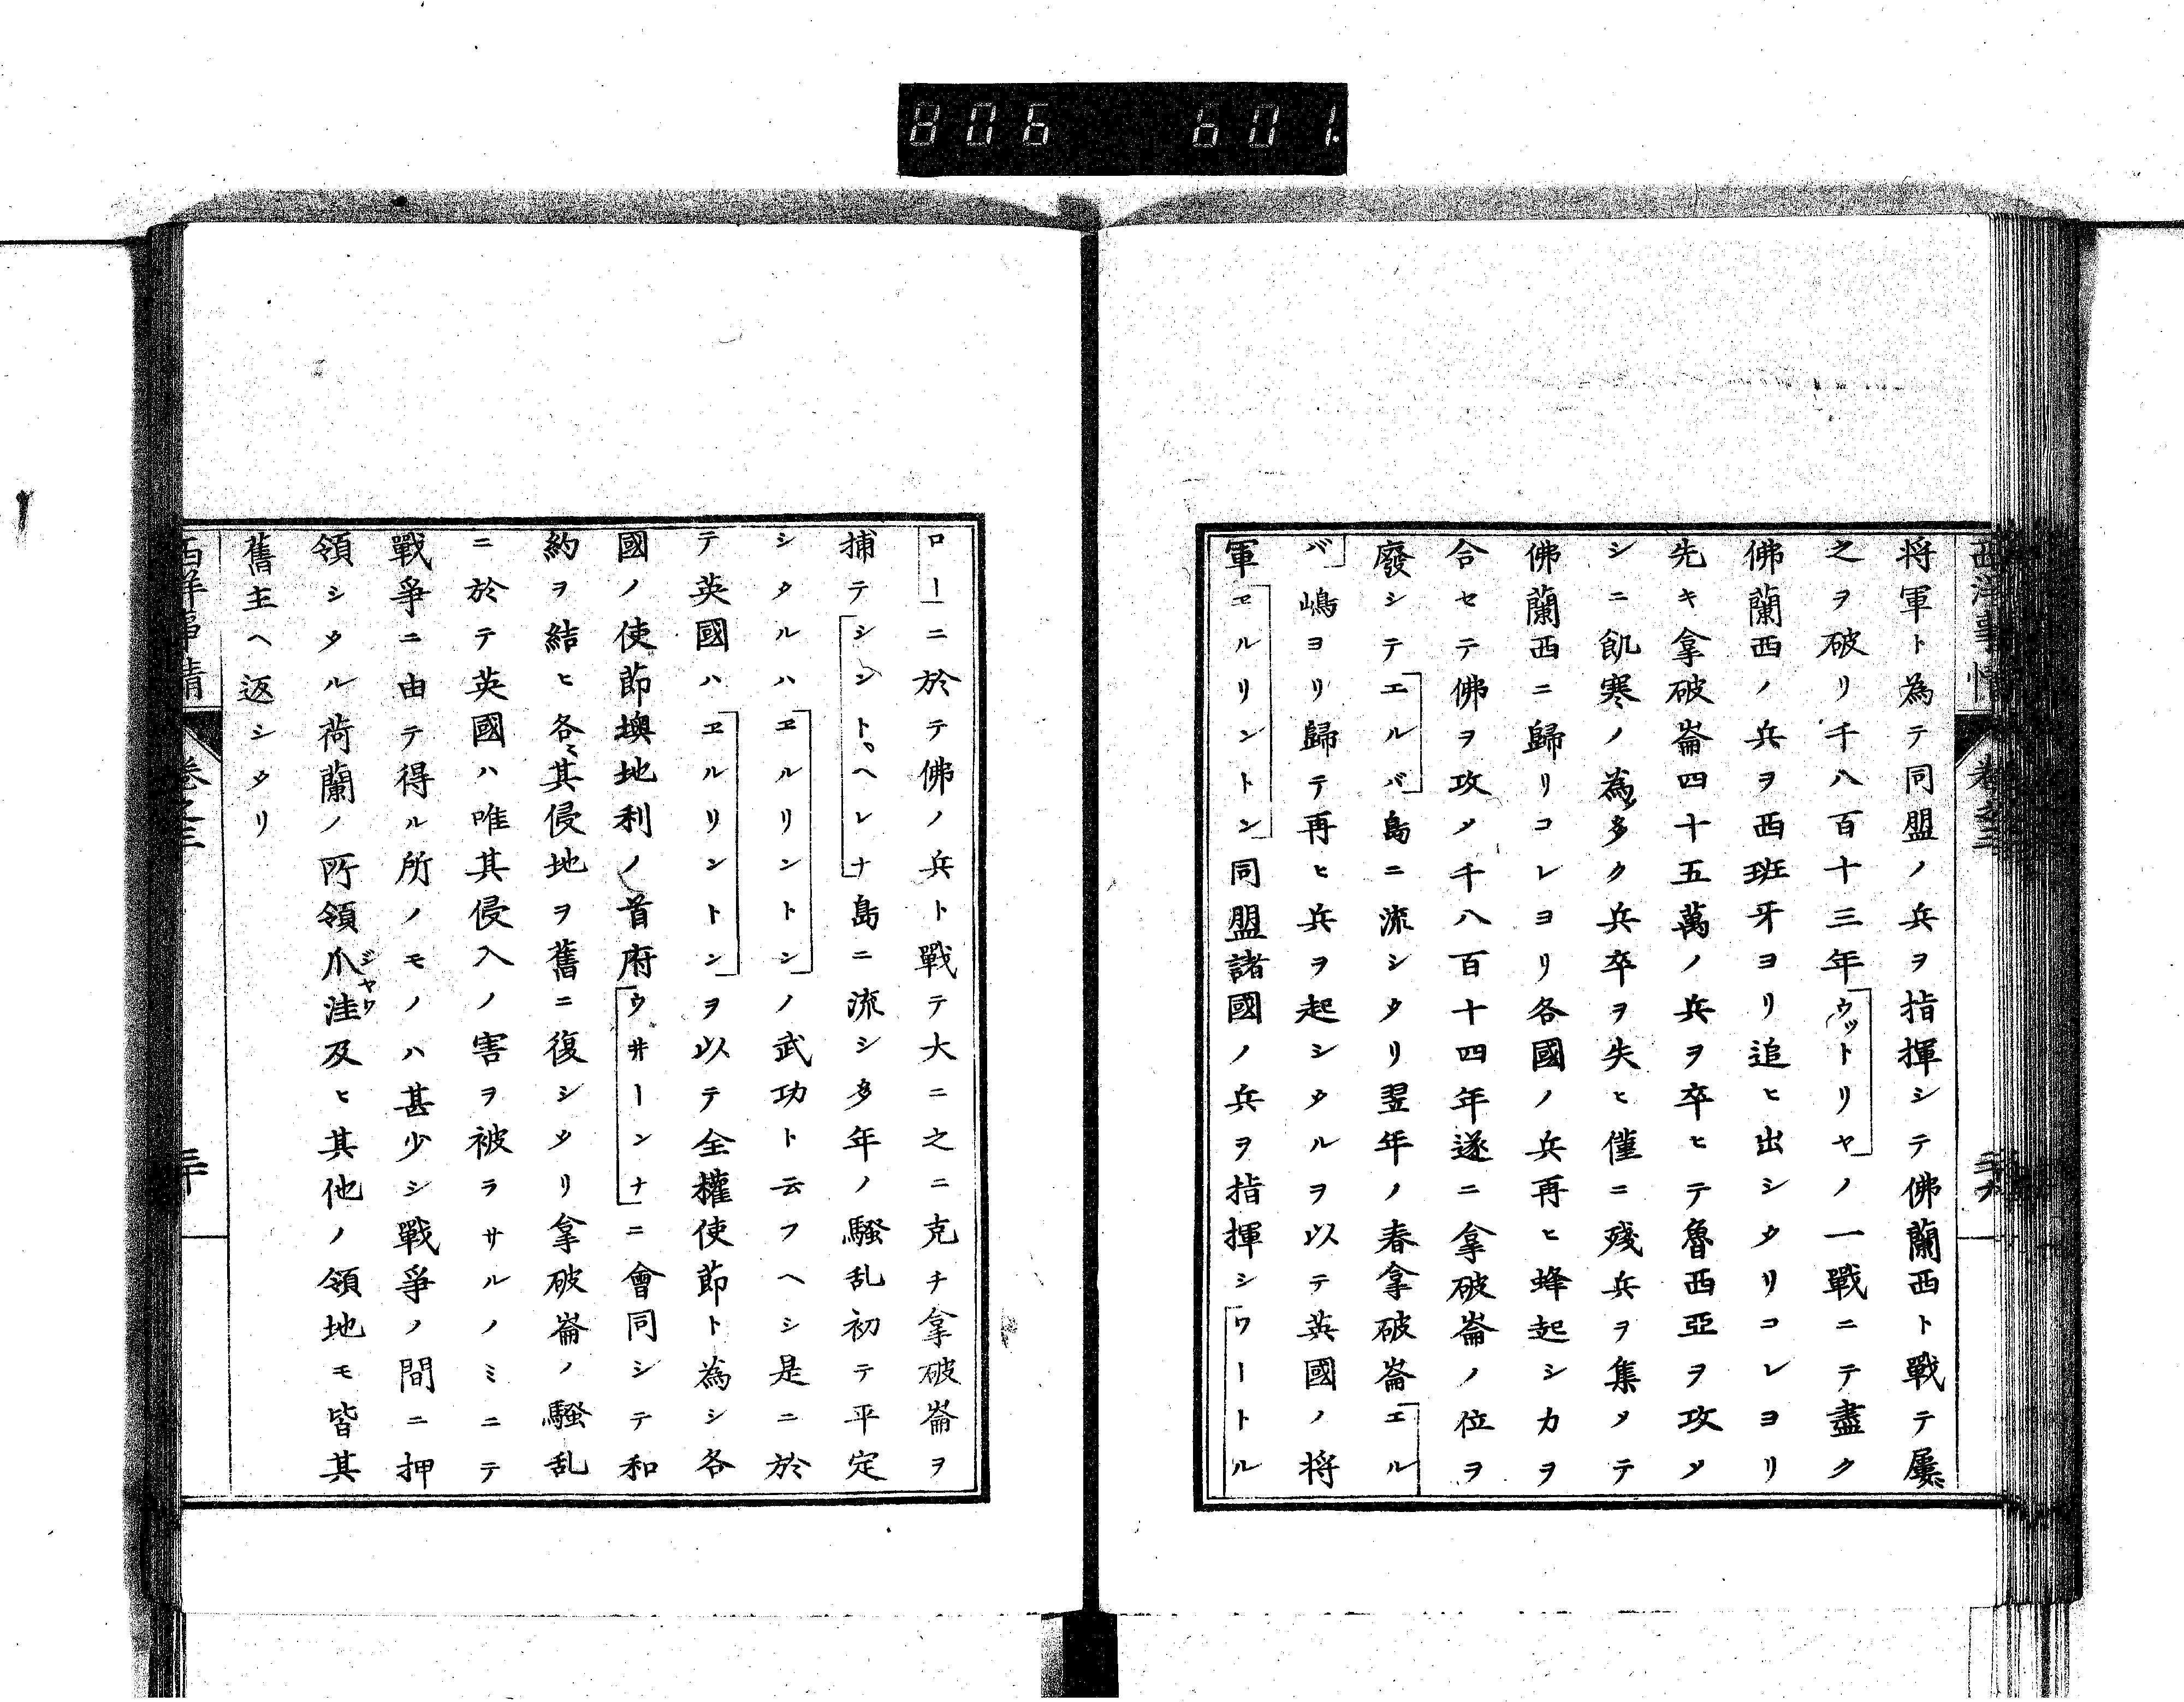 806 601.
西洋事情 卷之三 二十九
将軍ト為テ同盟ノ兵ヲ指揮シテ佛蘭西ト戰テ屢〻
之ヲ破リ千八百十三年ウットリヤノ一戰ニテ盡ク
佛蘭西ノ兵ヲ西班牙ヨリ追ヒ出シタリコレヨリ
先キ拿破崙四十五萬ノ兵ヲ卒ヒテ魯西亞ヲ攻メ
シニ飢寒ノ為メ多ク兵卒ヲ失ヒ僅ニ殘兵ヲ集メテ
佛蘭西ニ歸リコレヨリ各國ノ兵再ヒ蜂起シカヲ
合セテ佛ヲ攻メ千八百十四年遂ニ拿破崙ノ位ヲ
廢シテエルバ島ニ流シタリ翌年ノ春拿破崙エル
バ嶋ヨリ歸テ再ヒ兵ヲ起シタルヲ以テ英國ノ将
軍ヱルリントン同盟諸國ノ兵ヲ指揮シワートル
ローニ於テ佛ノ兵ト戰テ大ニ之ニ克チ拿破崙ヲ
捕テシントヘレナ島ニ流シ多年ノ騒乱初テ平定
シタルハヱルリントンノ武功ト云フヘシ是ニ於
テ英國ハヱルリントンヲ以テ全權使節ト為シ各
國ノ使節墺地利ノ首府ウヰーンナニ會同シテ和
約ヲ結ヒ各〻其侵地ヲ舊ニ復シタリ拿破崙ノ騒乱
ニ於テ英國ハ唯其侵入ノ害ヲ被ラサルノミニテ
戰爭ニ由テ得ル所ノモノハ甚少シ戰爭ノ間ニ押
領シタル荷蘭ノ所領爪洼ジヤワ及ヒ其他ノ領地モ皆其
舊主ヘ返シタリ
西洋事情 卷之三 三十